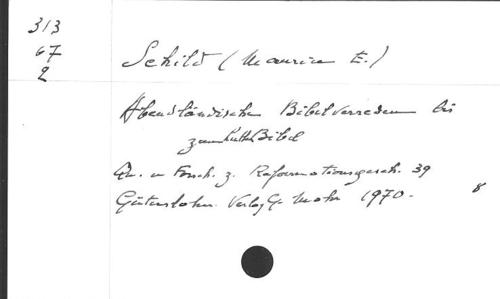 313
67
2
Schild (Maurice E.)
Abendländische Bibelvorreden bis
zur Luther Bibel
Qu. u Forsch. z. Reformationsgesch. 39
Gütersloh. Verlag G. Mohn 1970.
8